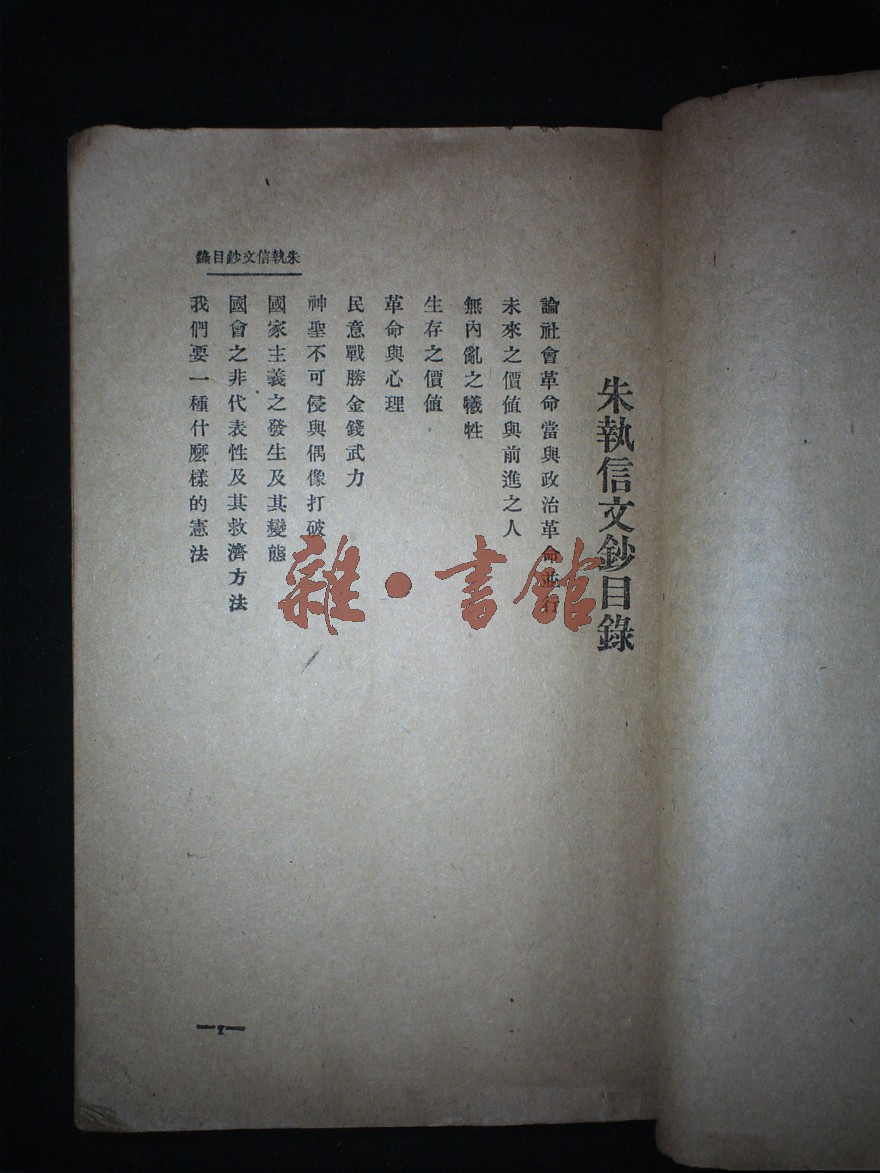 朱執信文鈔目錄
論社會革命當與政治革命並行
未來之價值與前進之人
無內亂之犧牲
生存之價值
革命與心理
民意戰勝金錢武力
神聖不可侵與偶像打破
國家主義之發生及其變態
國會之非代表性及其救濟方法
我們要一種什麼樣的憲法
朱執信文鈔目錄
1
雜·書館